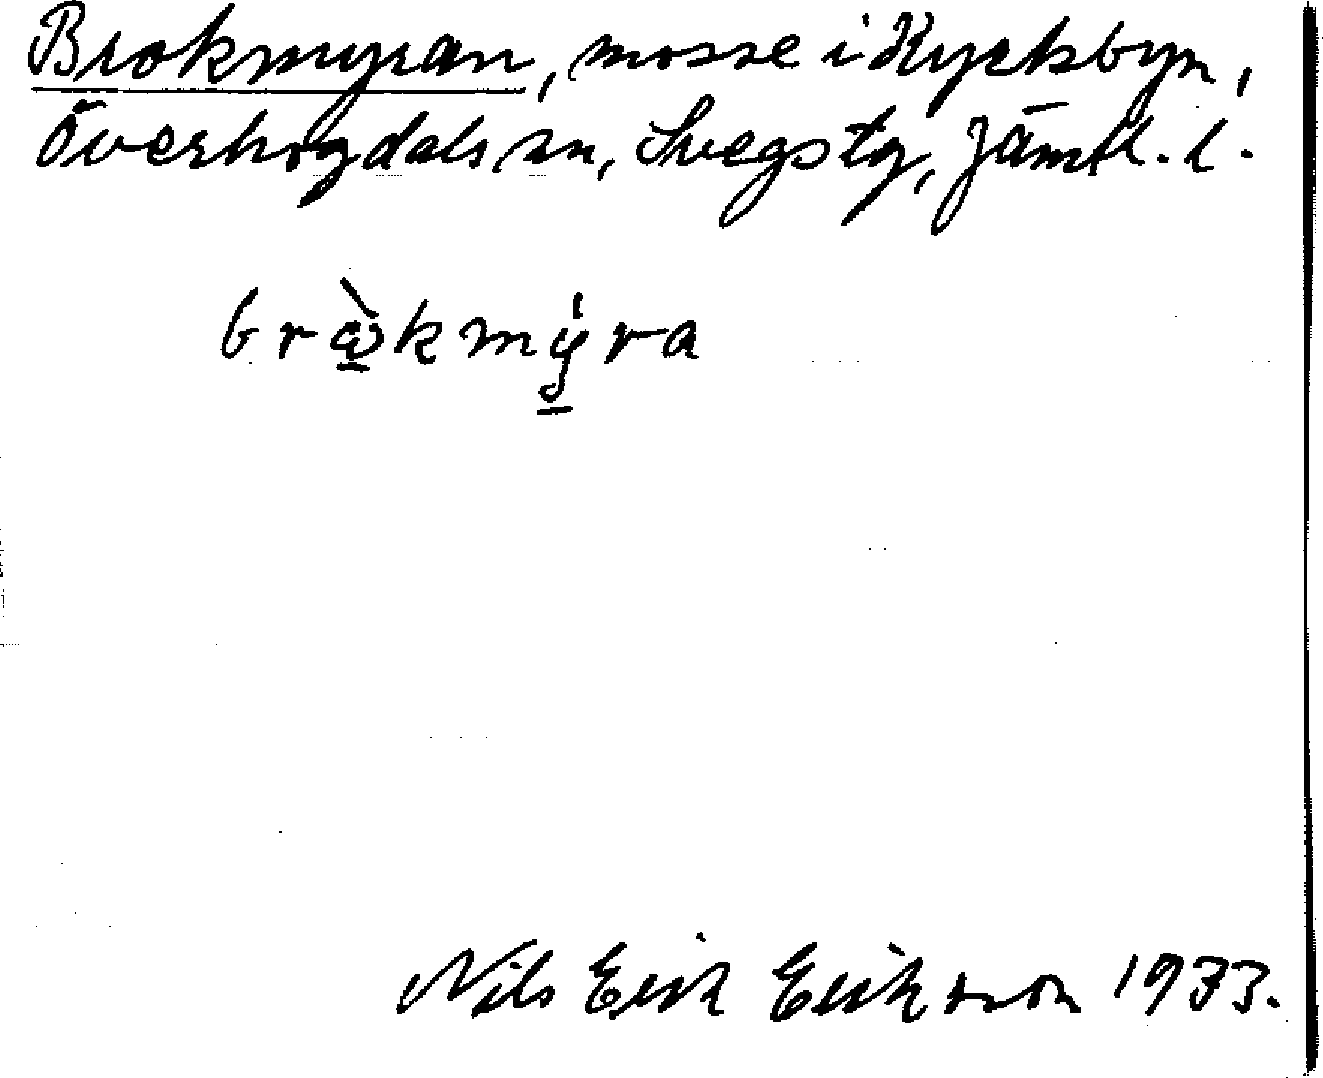 Brokmyran, mosse i Kyrkbyn,
Överhogdals sn, Svegs tg, Jämtl. l.
bròkmýra
Nils Erik Eriksson 1933.